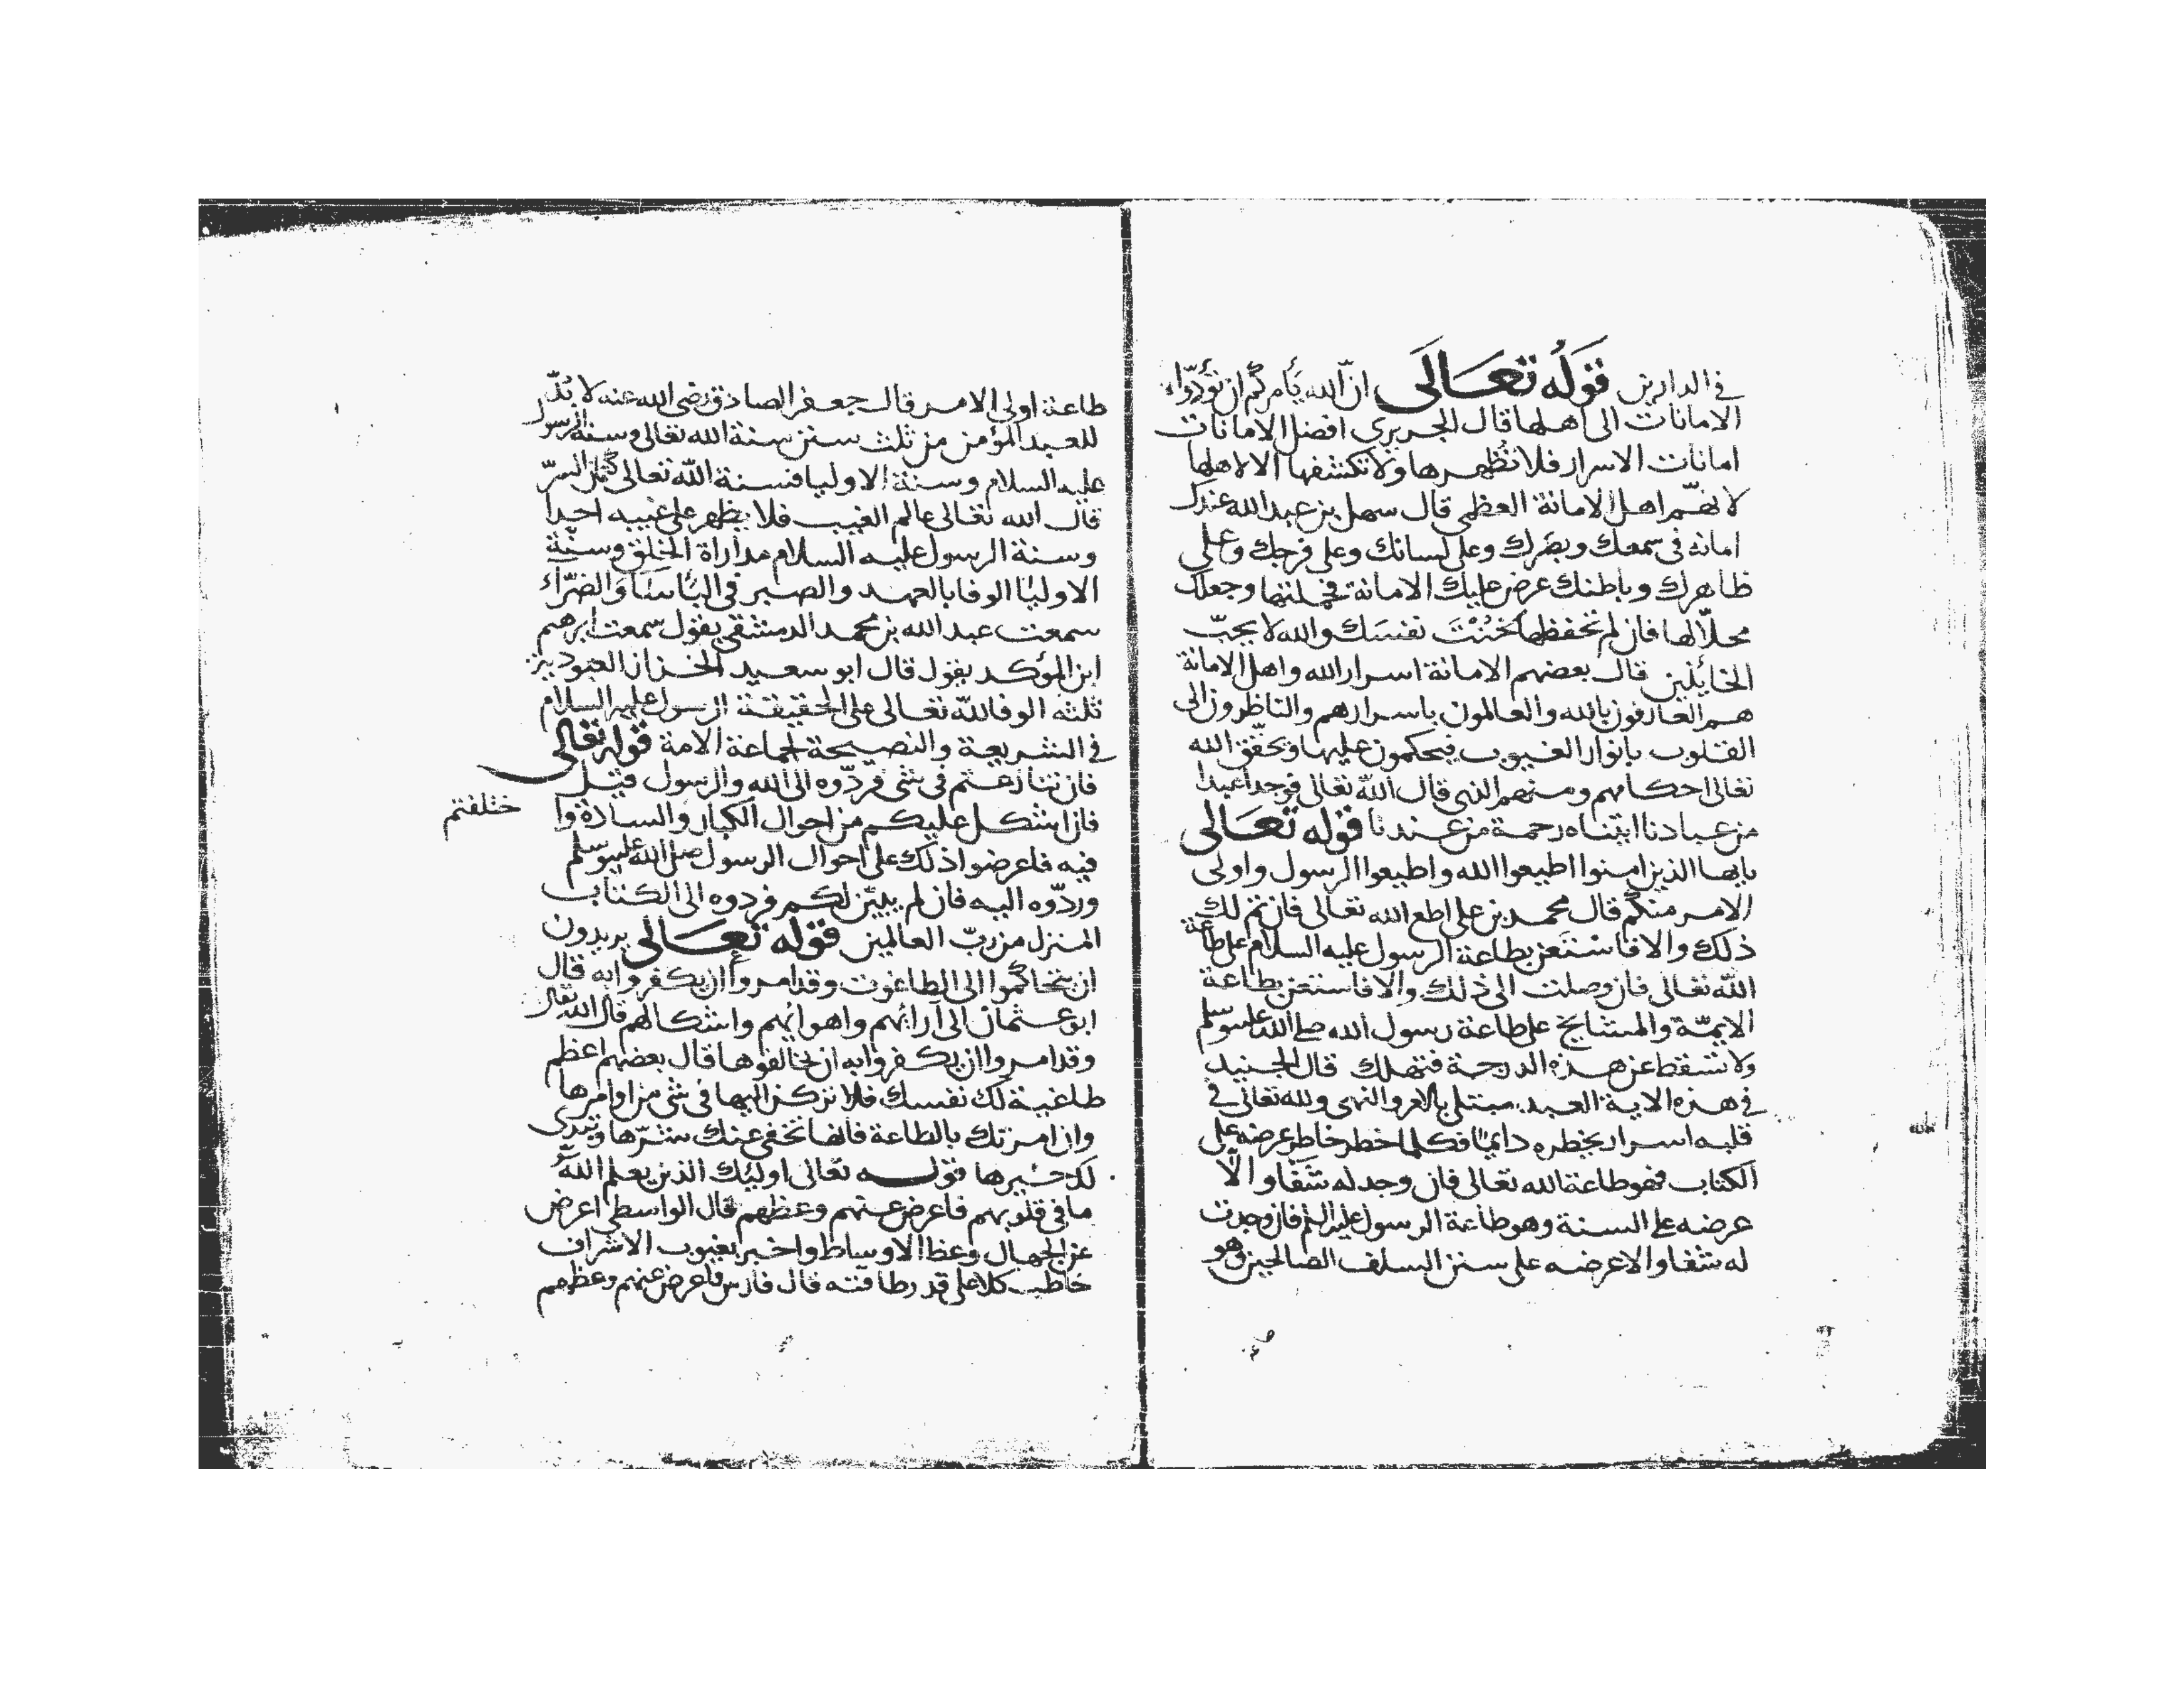 في الدارين قَولُه تعَالَى انّ الله يَأمركم ان تؤدّوا
الامانات الى اهلها قال الجريري افضل الامانات
امانات الاسرار فلا تظهرها ولا تكشفها الا لاهلها
اهل الامانة العظمى قال سهل بن عبد الله عندك
امانه فى سمعك وبصرك وعلى لسانك وعلى فرجك وعلى
ظاهرك وباطنك عرض عليك الامانة فحملتها وجعلك
محلا لها فان لم تحفظها خُنْتَ نفسَك والله لا يحبّ
الخائنين قال بعضهم الامانة اسرار الله واهل الامانة
هم العارفون بالله والعالمون باسرارهم والناظرون الى
القلوب بانوار الغيوب فيحكمون عليها وتحقق الله
تعالى احكامهم ومنهم النبى قال الله تعالى فوجدا عبدا
من عبادنا اتيناه رحمة من عندنا قوله تعَالى
يايها الذين امنوا اطيعوا الله واطيعوا الرسول واولى
الامر منكم قال محمد بن على اطع الله تعالى فان تم لك
ذلك والا فاستَعن بطاعة الرسول عليه السلام على طاعة
الله تعالى فان وصلت الى ذلك والا فاستعن بطاعة
الايمّة والمشايخ على طاعة رسول الله صلى الله عليه وسلم
ولا تسقط عن هذه الدرجة فتهلك قال الجنيد
في هذه الاية العبد مبتلى بالامر والنهى ولله تعالى في
قلبه اسرار يخطره دايما فكلما خطر خاطر عرضه على
الكتاب فهو طاعة الله تعالى فان وجد له شفَا والّا
عرضه على السنة وهو طاعة الرسول عليه السلم فان وجدت
له شفا والا عرضه على سنن السلف الصالحين وهو
طاعة اولى الامر قال جعفر الصادق رضى الله عنه لا بُدّ
للعبد المؤمن من ثلث سنن سنة الله تعالى وسنة الرسول
عليه السلام وسنة الاوليا فسنة الله تعالى كتمان السرّ
قال الله تعالى عالم الغيب فلا يظهر على غيبه احدا
وسنة الرسول عليه السلام مداراة الخلق وسنّة
الاوليا الوفا بالعهد والصبر فى البأسَا وَالضرّاء
سمعت عبد الله بن محمد الدمشقى يقول سمعت ابرهيم
ابن المؤكد يقول قال ابو سعيد الخزاز العبودية
ثلثه الوفا لله تعالى على الحقيقة الرسول عليه السلام
في الشريعة والنصيحة لجماعة الامة قوله تعَالى
فان تنازعتم فى شى فردّوه الى الله والرسول قيل
فان اشكل عليكم من احوال الكبار والسادة وا
ختلفتم
فيه فاعرضوا ذلك على احوال الرسول صلى الله عليه وسلم
وردّوه اليه فان لم يبيّن لكم فردوه الى الكتاب
المنزل من ربّ العالمين قوله تعَالى يريدون
ان يتحاكموا الى الطاغوت وقد امروا ان يكفروا به قال
ابو عثمان الى آرائهم واهوائهم واشكالهم قال الله تعالى
وقد امروا ان يكفروا به ان يخالفوها قال بعضهم اعظم
طاغية لك نفسك فلا تركن اليها فى شى من اوامرها
وان امرتك بالطاعة فانها تخفى عنك شرّها وتبدى
لك خيرها قوله تعالى اولئك الذين يعلم اللهُ
ما في قلوبهم فاعرض عنهم وعظهم قال الواسطى اعرض
عن الجهال وعظ الاوساط واخبر بعيوب الاشراف
خاطب كلا على قدر طاقته قال فارس فاعرض عنهم وعظهم